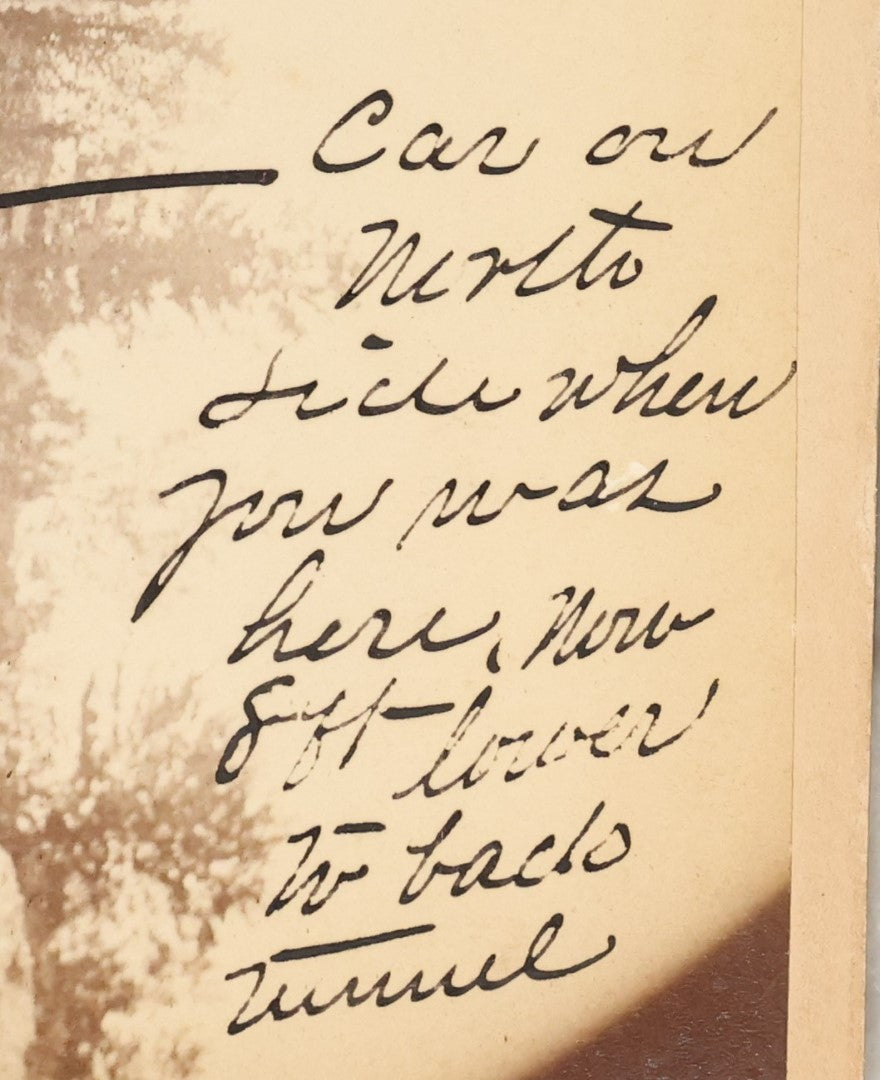 Car on
North
side when
you was
here, Now
8 ft lower
to back
tunnel